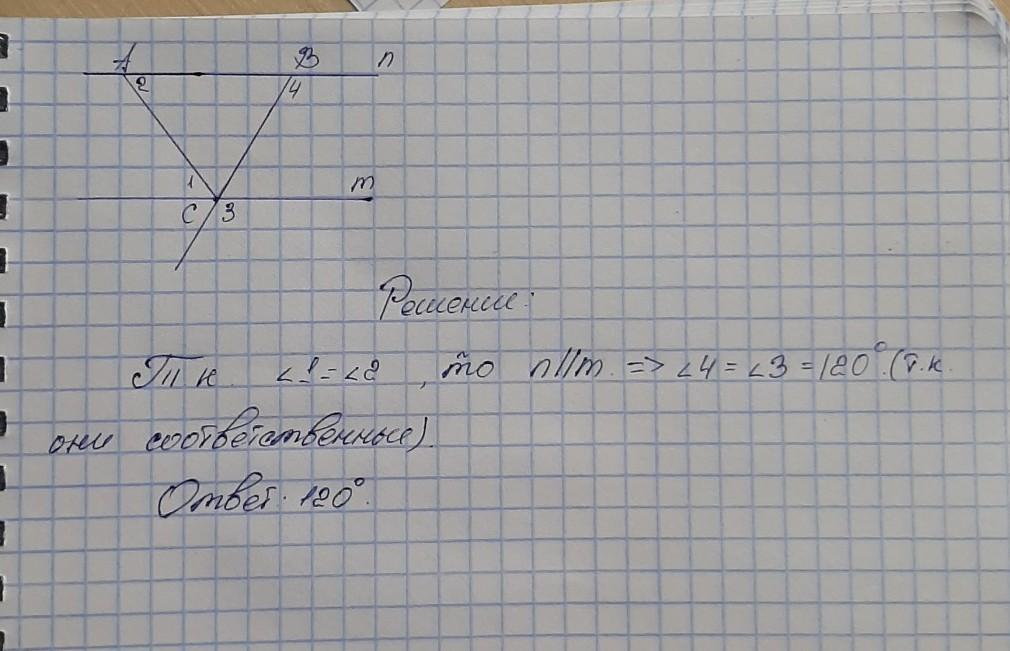 A B n
2 4
1 m
C 3
Решение:
Т. к. ∠1 = ∠2, то n∥m. => ∠4 = ∠3 = 120°. (т.к.
они соответственные).
Ответ: 120°.